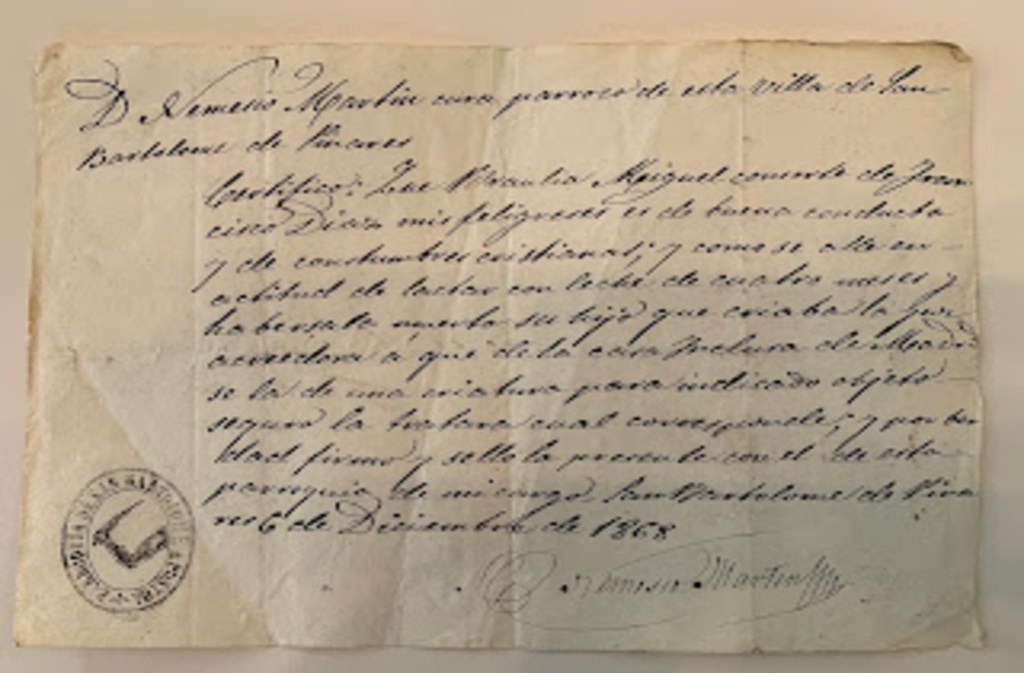 D. Nemesio Martin cura parroco de esta villa de San
Bartolome de Pinares
Certifico: Que Braulia Miguel consorte de Fran
cisco Diaz mis feligreses es de buena conducta
y de constumbres cristianas; y como se alle en
actitud de lactar con leche de cuatro meses y
habersela muerto su hijo que criaba la
acreedora a que de la casa Inclusa de Madrid
se la de una criatura para indicado objeto
seguro la tratara cual corresponde; y por ver
dad firmo y sello la presente con el de esta
parroquia de mi cargo. San Bartolome de Pina
res 6 de Diciembre de 1868
Nemesio Martin
SAN BARTOLOME